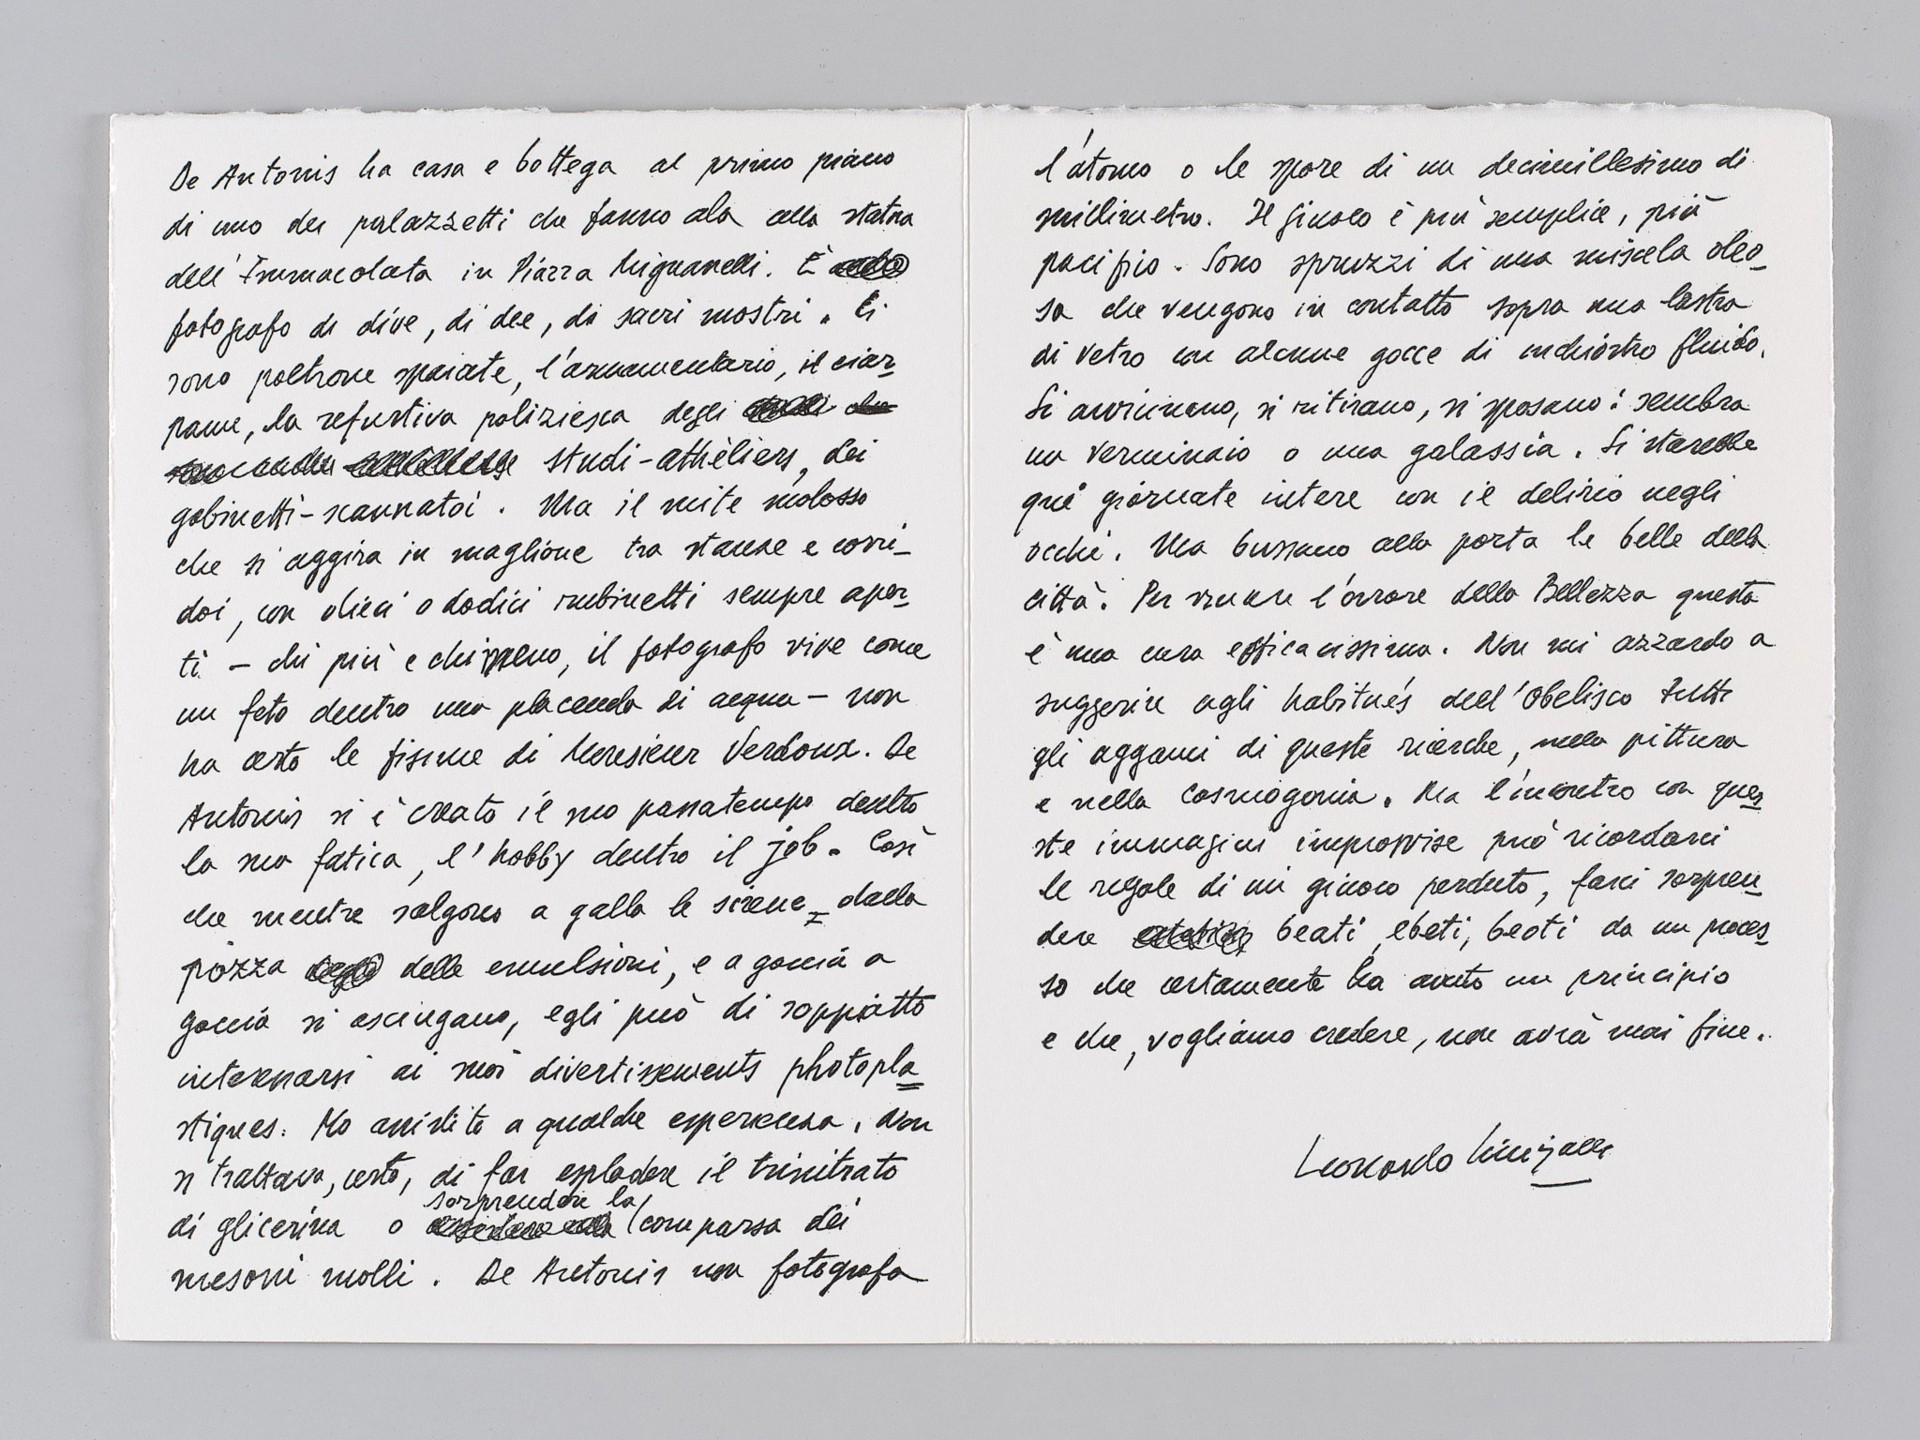 De Antonis ha casa e bottega al primo piano
di uno dei palazzetti che fanno ala alla statua
dell'Immacolata in Piazza Mignanelli. È
fotografo di dive, di dee, di sacri mostri. Ci
sono poltrone spaiate, l'armamentario, il ciar-
pame, la refurtiva poliziesca degli
studi-athèliers, dei
gabinetti-scannatoi. Ma il mite molosso
che si aggira in maglione tra stanze e corri-
doi, con dieci o dodici rubinetti sempre aper-
ti – chi più e chi meno, il fotografo vive come
un feto dentro una placenda di acqua – non
ha certo le fisime di Monsieur Verdoux. De
Antonis si è creato il suo passatempo dentro
la sua fatica, l'hobby dentro il job. Così
che mentre salgono a galla le sirene dalla
pozza delle emulsioni, e a goccia a
goccia si asciugano, egli può di soppiatto
internarsi ai suoi divertissements photopla-
stiques. Ho assistito a qualche esperienza. Non
si trattava, certo, di far esplodere il trinitrato
di glicerina o sorprendere la comparsa dei
mesoni molli. De Antonis non fotografa
l'atomo o le spore di un decimillesimo di
millimetro. Il giuoco è più semplice, più
pacifico. Sono spruzzi di una miscela oleo-
sa che vengono in contatto sopra una lastra
di vetro con alcune gocce di inchiostro fluido.
Si avvicinano, si ritirano, si sposano: sembra
un verminaio o una galassia. Si starebbe
qui giornate intere con il delirio negli
occhi. Ma bussano alla porta le belle della
città. Per vincere l'orrore della Bellezza questa
è una cura efficacissima. Non mi azzardo a
suggerire agli habitués dell'Obelisco tutti
gli agganci di queste ricerche, nella pittura
e nella cosmogonia. Ma l'incontro con que-
ste immagini improvvise può ricordarci
le regole di un giuoco perduto, farci sorpren-
dere beati, ebeti, beoti da un proces-
so che certamente ha avuto un principio
e che, vogliamo credere, non avrà mai fine.
Leonardo Sinisgalli